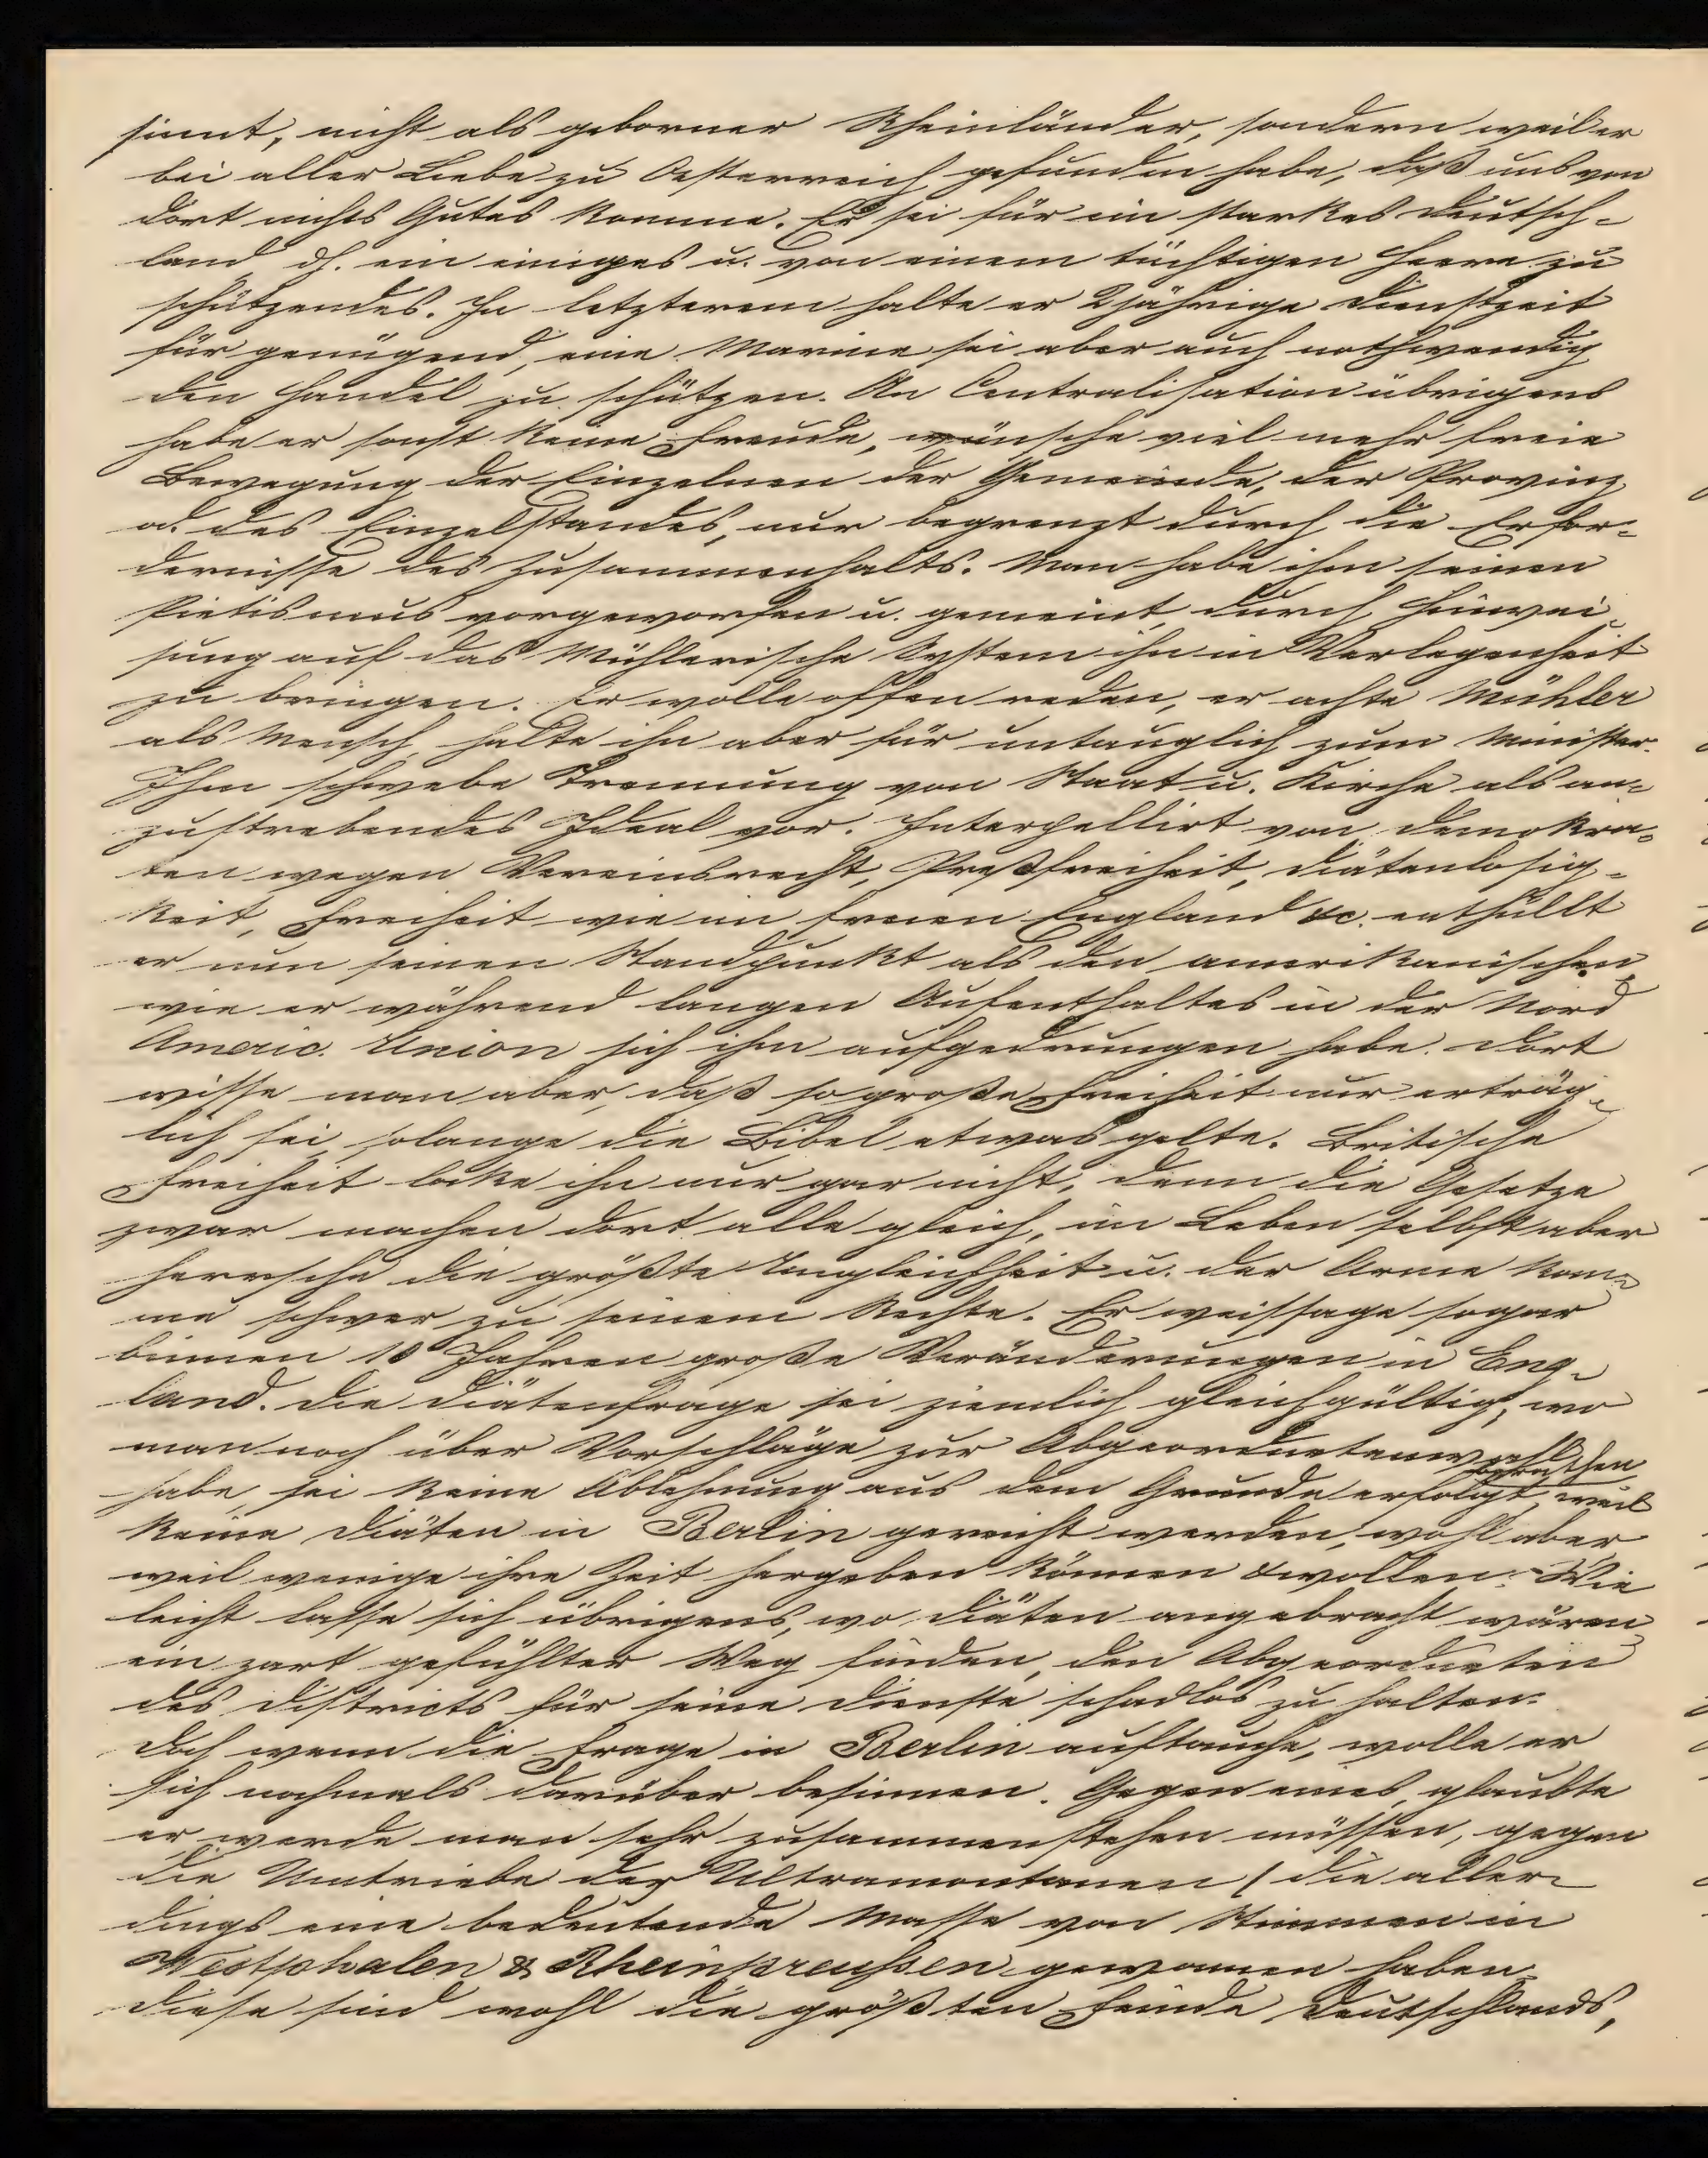 sinnt, nicht als geborner Rheinländer, sondern weil er
bei aller Liebe zu Oesterreich gefunden habe, daß uns von
dort nichts Gutes komme. Er sei für ein starkes Deutsch-
land dh. ein einiges u. von einem tüchtigen Heere zu
schützendes. In letzterem halte er 2jährige Dienstzeit
für genügend, eine Marine sei aber auch nothwendig
den Handel zu schützen. An Centralisation übrigens
habe er sonst keine Freude, wünsche viel mehr freie
Bewegung der Einzelnen der Gemeinde, der Provinz
od. des Einzelstandes, nur begrenzt durch die Erfor-
dernisse des Zusammenhalts. Man habe ihm seinen
Pietismus vorgeworfen u. gemeint, durch Hinwei-
sung auf das Mühlerische System ihn in Verlegenheit
zu bringen. Er wolle offen reden, er achte Mühler
als Mensch, halte ihn aber für untauglich zum Minister.
Ihm schwebe Trennung von Staat u. Kirche als an-
zustrebendes Ideal vor. Interpellirt von Demokra-
ten wegen Vereinsrecht, Preßfreiheit, Diätenlosig-
keit, Freiheit wie im freien England &c. enthüllt
er nun seinen Standpunkt als den amerikanischen,
wie er während langen Aufenthaltes in der Nord
Americ. Union sich ihm aufgedrungen habe. Dort
wisse man aber, daß so große Freiheit nur erträg-
lich sei, solange die Bibel etwas gelte. Britische
Freiheit locke ihn nur gar nicht, denn die Gesetze
zwar machen dort alle gleich, im Leben selbst aber
herrsche die größte Ungleichheit u. der Arme kom-
me schwer zu seinem Rechte. Er weissage sogar
binnen 10 Jahren große Veränderungen in Eng-
land. Die Diätenfrage sei ziemlich gleichgültig, wo
man noch über Vorschläge zur Abgeordnetenwahl berathen
habe, sei keine Ablehnung aus dem Grunde erfolgt, weil
keine Diäten in Berlin gereicht werden, wohl aber
weil wenige ihre Zeit hergeben können & wollen. Wie
leicht lasse sich übrigens, wo Diäten angebracht wären,
ein zart gefühlter Weg finden, den Abgeordneten
des Districts für seine Dienste schadlos zu halten.
Doch wenn die Frage in Berlin auftauche, wolle er
sich nochmals darüber besinnen. Gegen eines, glaubte
er, werde man sehr zusammenstehen müssen, gegen
die Umtriebe der Ultramontanen / die aller-
dings eine bedeutende Masse von Stimmen in
Westphalen & Rheinpreußen gewonnen haben.
Diese sind wohl die größten Feinde Deutschlands,